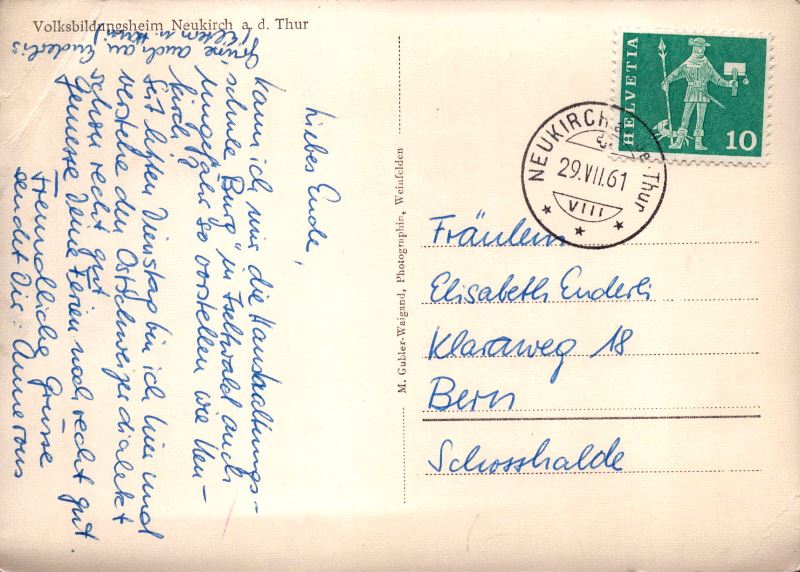 Volksbildungsheim Neukirch a. d. Thur
Liebes Ende,
kann ich mir die Haushaltungs-
schule "Burg" in Faltwald auch
ungefähr so vorstellen wie Neu-
kirch?
Seit letzten Dienstag bin ich hier und
verstehe den Ostschweizerdialekt
schon recht gut.
Geniesse Deine Ferien noch recht gut.
Freundliche Grüsse
sendet Dir: Annerös
Grüsse auch an Enderlis
(Eltern u.
M. Gubler-Waigand, Photographin, Weinfelden
HELVETIA
10
NEUKIRCH a. d. Thur
29.VII.61
VIII
Fräulein
Elisabeth Enderli
Klaraweg 18
Bern
Schosshalde